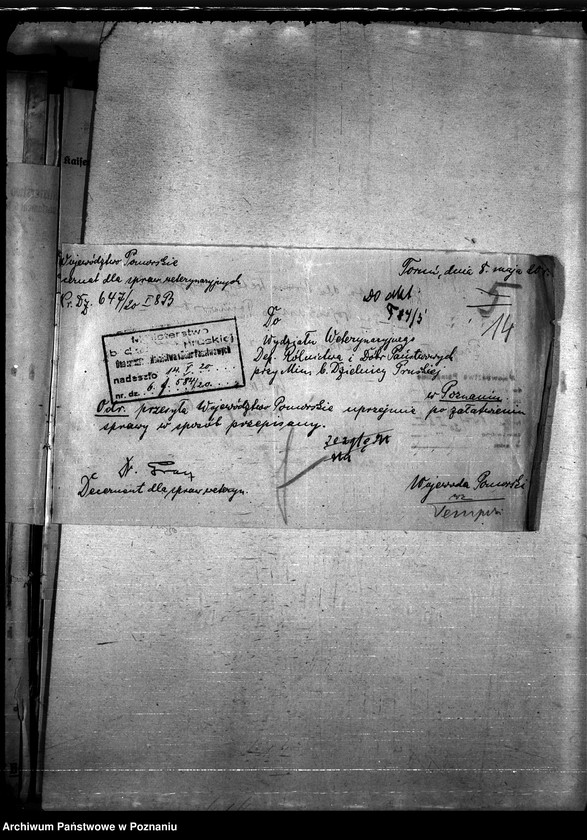 Kaise
Województwo Pomorskie
Decernat dla spraw weterynaryjnych
Pr. Dz. 647/20 I 8 B
Toruń, dnia 8. maja 20 r.
Do akt
584/5
5
14
Do
Wydziału Weterynaryjnego
Dep. Rolnictwa i Dóbr Państwowych
przy Min. b. Dzielnicy Pruskiej
w Poznaniu.
Ministerstwo
b. dzielnicy Pruskiej
nadeszło 14. V. 20.
nr. dz. 6. g. 584/20.
Odr. przesyła Województwo Pomorskie uprzejmie po załatwieniu
sprawy w sposób przepisany.
Decernent dla spraw weteryn.
Wojewoda Pomorski
wz
Archiwum Państwowe w Poznaniu